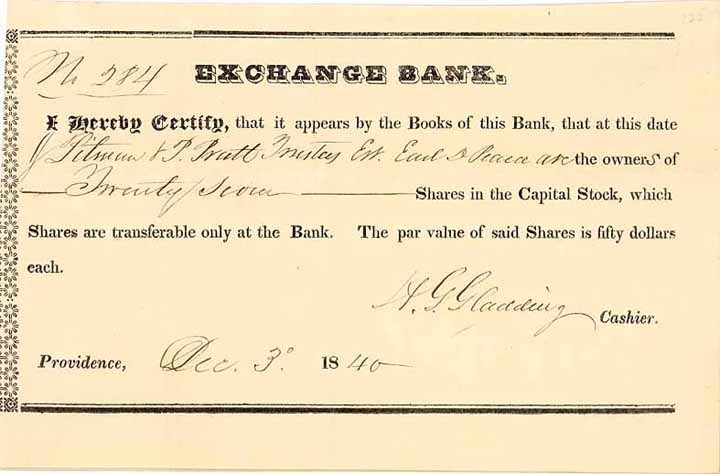 122
No 284
EXCHANGE BANK.
I Hereby Certify, that it appears by the Books of this Bank, that at this date
J Pitman & P. Pratt Trustees Est. Earl D Pearce are the owners of
Twenty Seven Shares in the Capital Stock, which
Shares are transferable only at the Bank. The par value of said Shares is fifty dollars
each.
H. G. Gladding Cashier.
Providence, Dec. 3d 1840